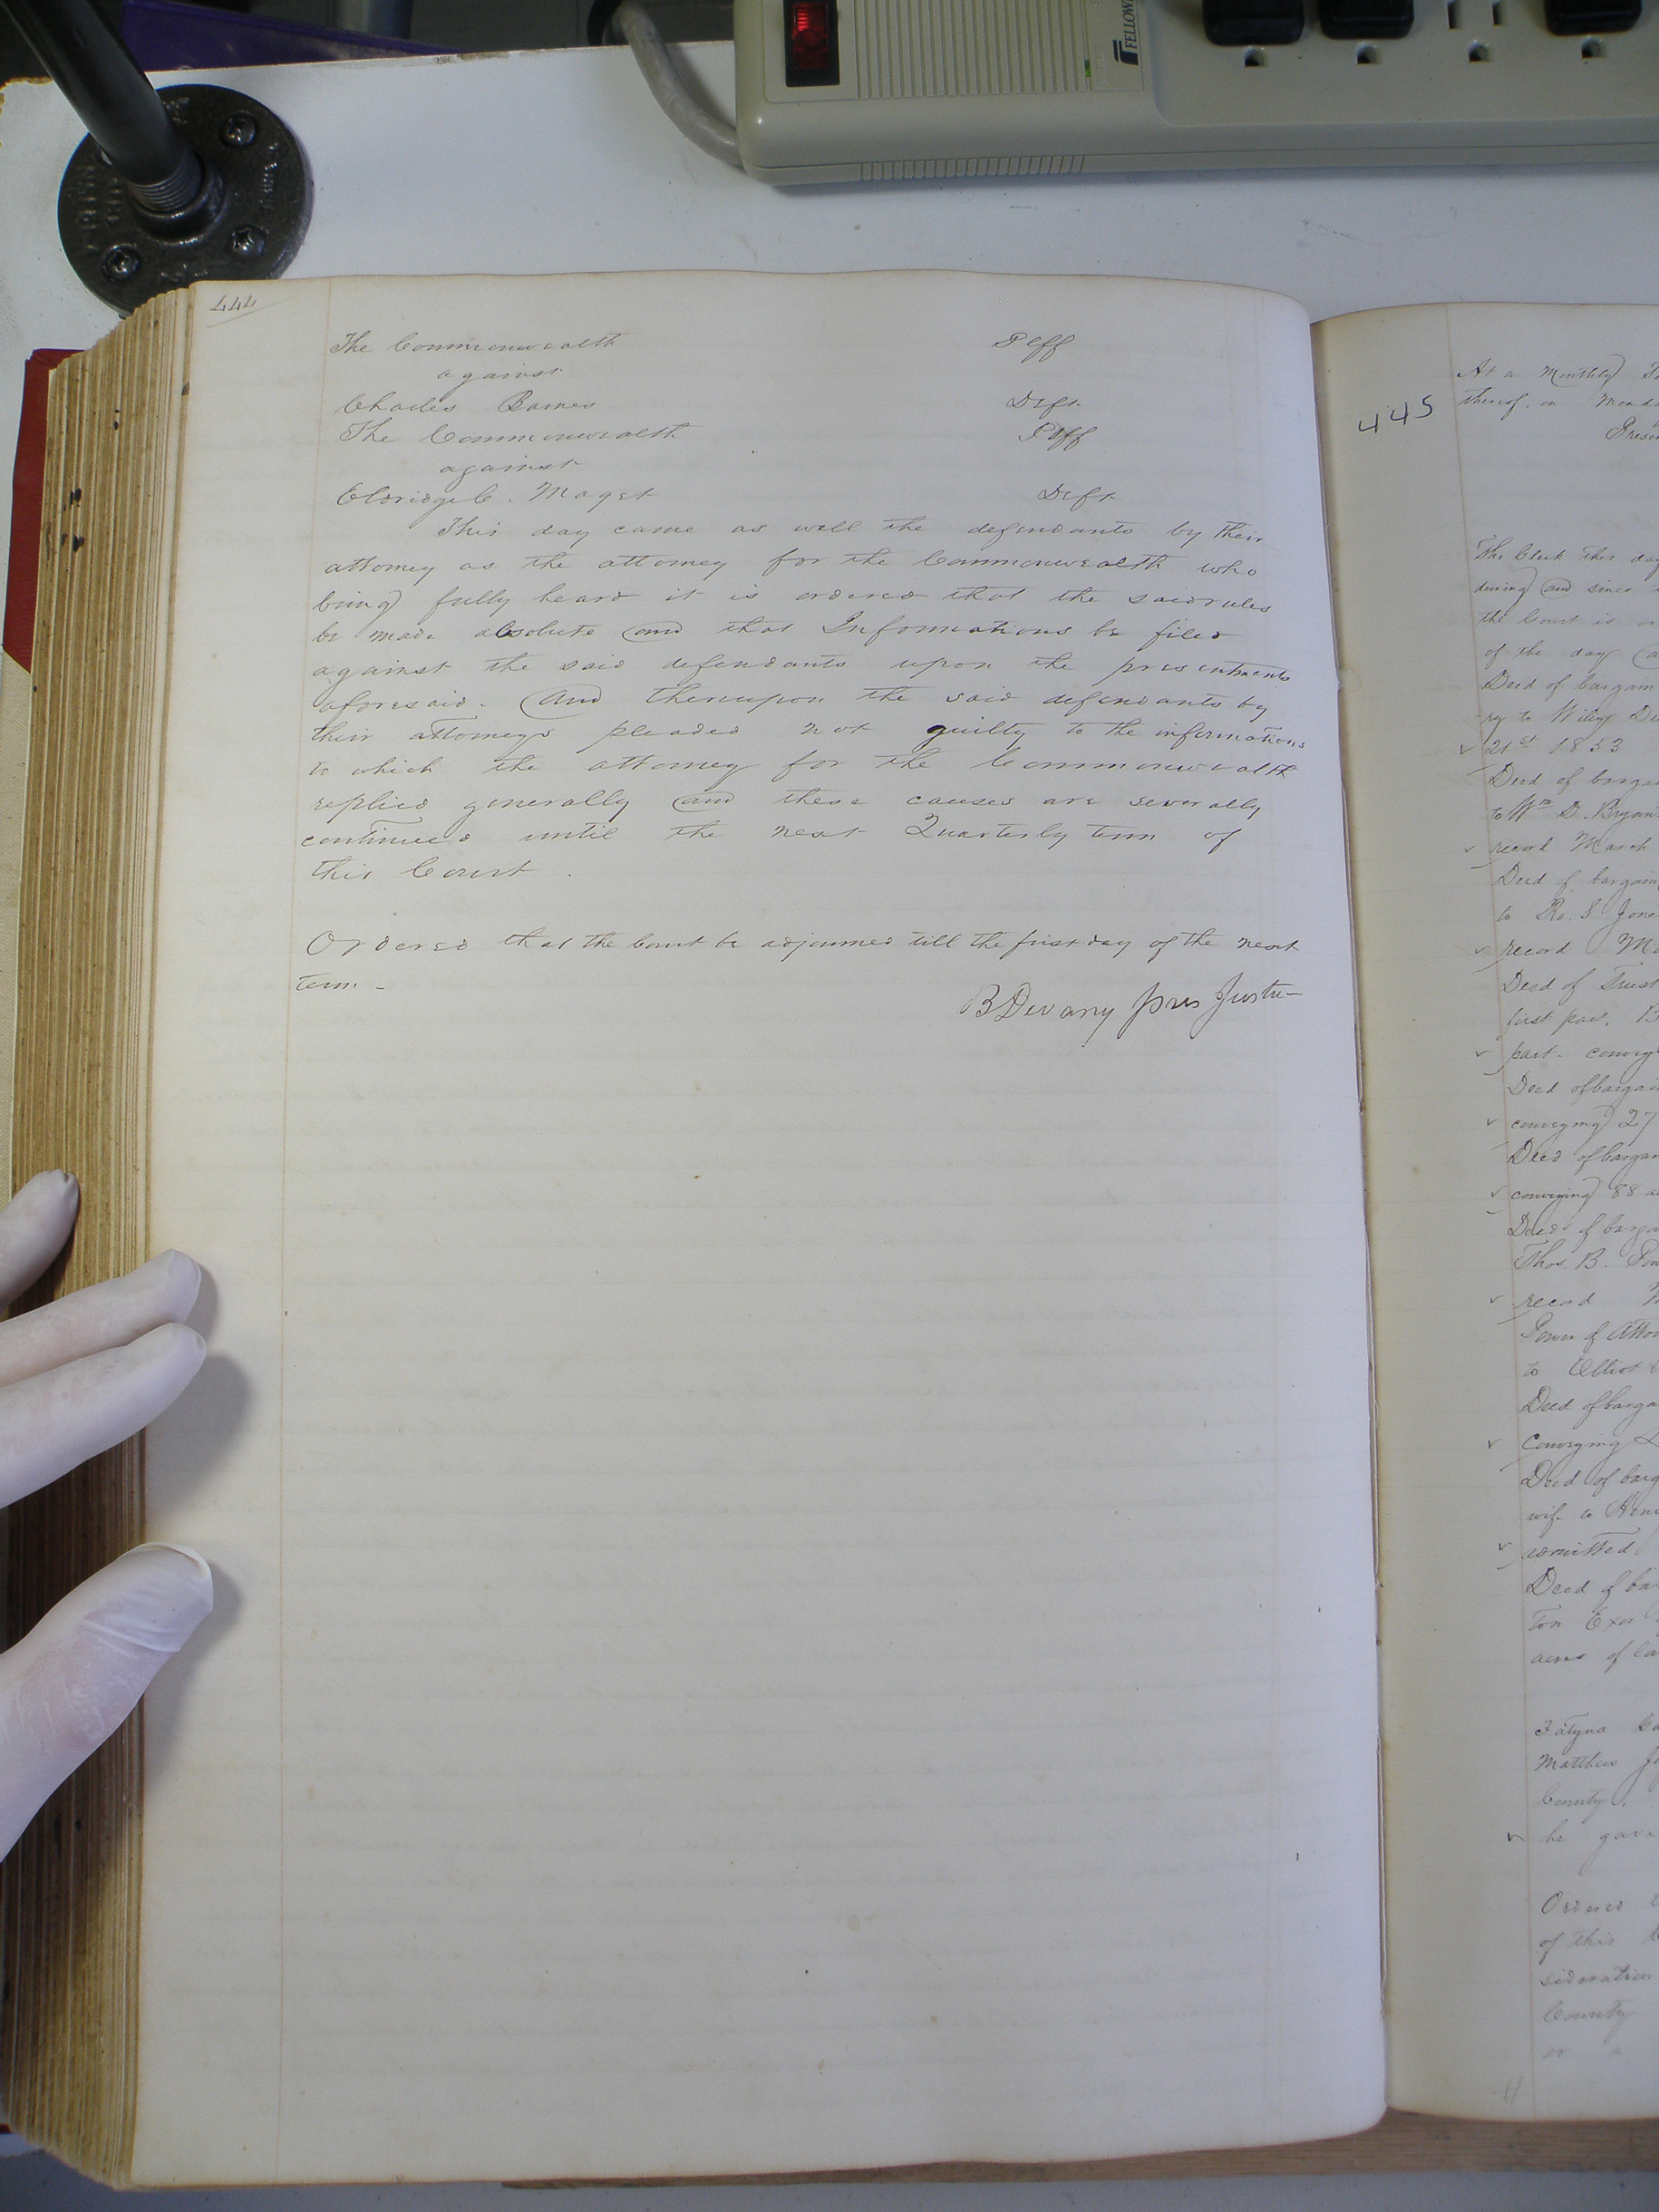 FELLOW
444
The Commonwealth Plff
against
Charles Barnes Deft
The Commonwealth Plff
against
Eldridge C. Maget Deft
This day came as well the defendants by their
attorney as the attorney for the Commonwealth who
being fully heard it is ordered that the said rules
be made absolute and that Informations be filed
against the said defendants upon the presentments
aforesaid. And thereupon the said defendants by
their attorneys pleaded not guilty to the informations
to which the attorney for the Commonwealth
replied generally and these causes are severally
continued until the next Quarterly term of
this Court.
Ordered that the Court be adjourned till the first day of the next
term. -
B Devany pres Justice
445
At a Monthly
thereof. on Monda
Presen
The Clerk this day
during and since
the Court is
of the day
Deed of bargain
ry to Wiley
21st 1853
Deed of bargai
to Wm D. Bryan
record March
Deed of bargain
to Ro. S. Jone
record Ma
Deed of Trust
first part. B
part. convey
Deed of bargai
conveying 27
Deed of bargai
conveying 88 a
Deeds of barga
Thos. B.
record
Power of Atto
to Elliot
Deed of barga
Conveying
Deed of barg
wife to Hen
admitted
Deed of ba
ton Exor
acres of la
Matthew J
County.
he gave
Ordered
of this
sideration
County